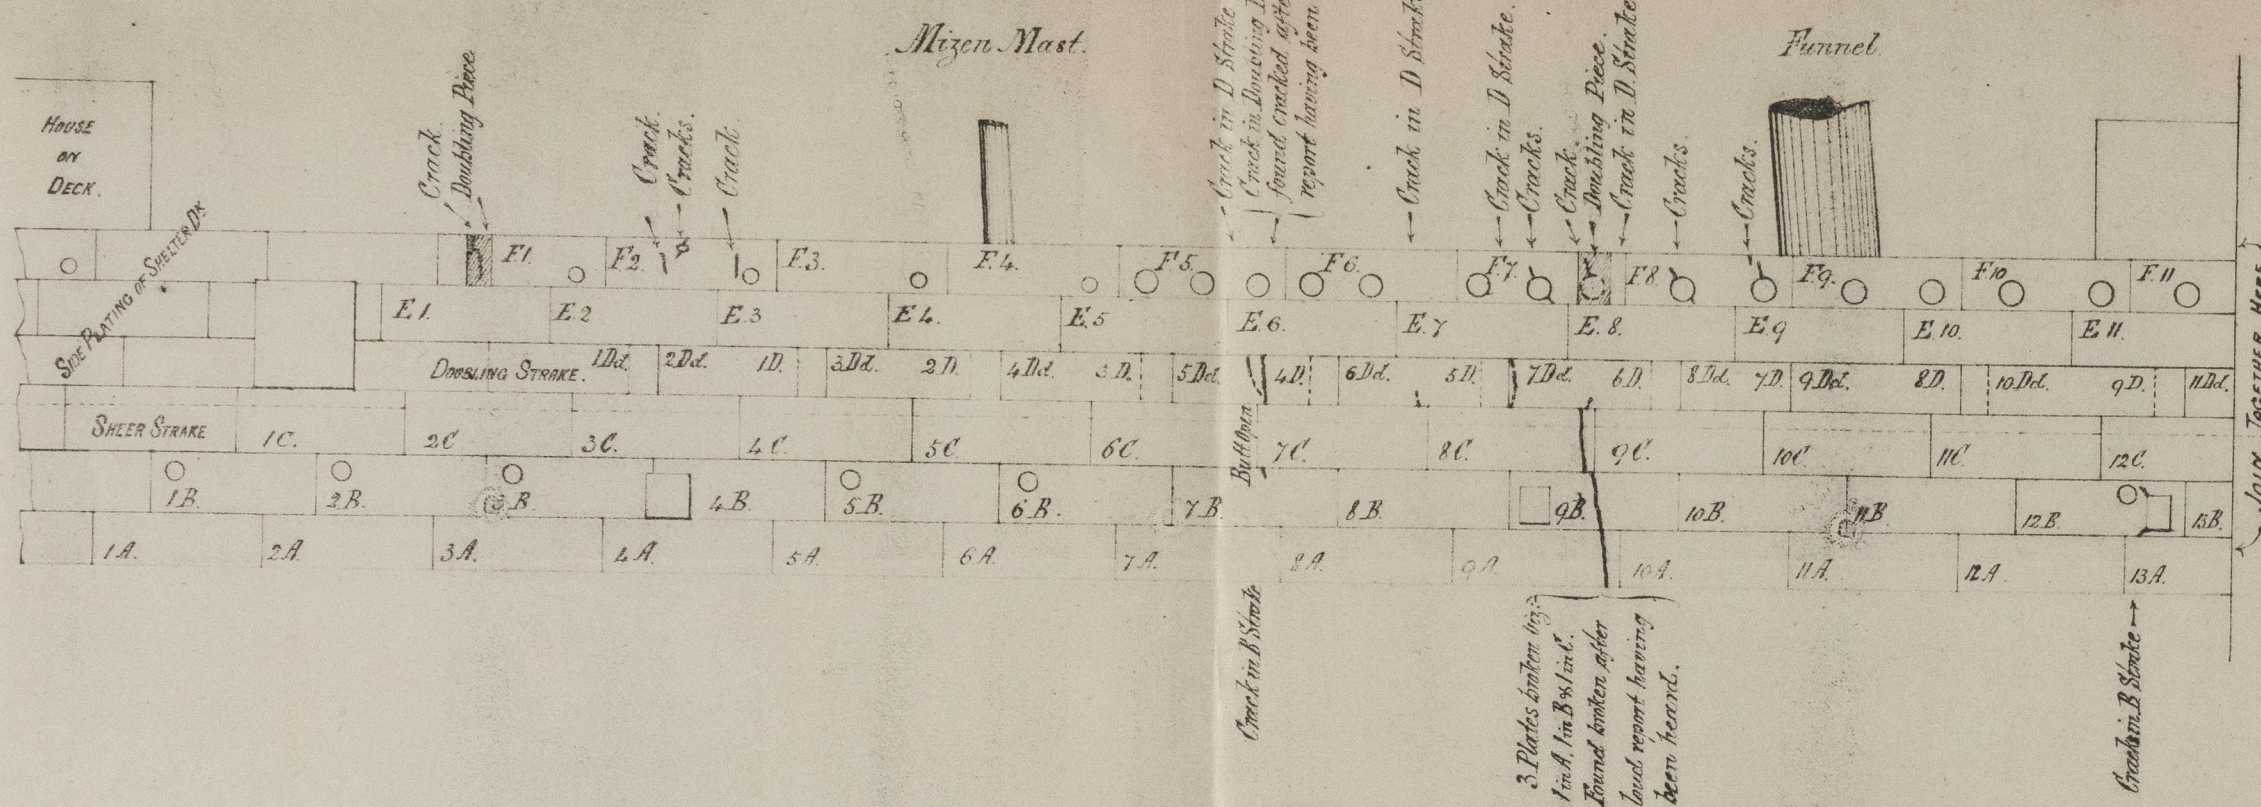 Mizen Mast.
Funnel.
HOUSE
ON
DECK.
Crack
Doubling Piece
Crack.
Cracks.
Crack
Crack in D Strake
Crack in Doubling
found cracked after
report having been
Crack in D Strake
Crack in D Strake.
Cracks.
Crack
Doubling Piece.
Crack in D. Strake
Cracks.
Cracks.
SIDE PLATING OF SHELTER DK
F.1. F.2. F.3. F.4. F.5. F.6. F.7. F.8. F.9. F.10. F.11
E.1. E.2 E.3 E.4. E.5 E.6. E.7 E.8. E.9 E.10. E.11.
DOUBLING STRAKE. 1Dd. 2Dd. 1D. 3Dd. 2D. 4Dd. 3D. 5Dd. 4D. 6Dd. 5D. 7Dd. 6D. 8Dd. 7D. 9Dd. 8D. 10Dd. 9D. 11Dd.
SHEER STRAKE 1C. 2C 3C. 4C. 5C. 6C. 7C. 8C. 9C. 10C 11C 12C.
Butt Open
1B. 2B. 3B. 4B. 5B. 6B. 7B. 8B. 9B. 10B. 11B 12B. 13B.
1A. 2A. 3A. 4A. 5A. 6A. 7A. 8A. 9A. 10A. 11A. 12A. 13A.
JOIN TOGETHER HERE
Crack in B Strake
3 Plates broken viz:
1 in A, 1 in B & 1 in C.
Found broken after
loud report having
been heard.
Cracks in B Strake